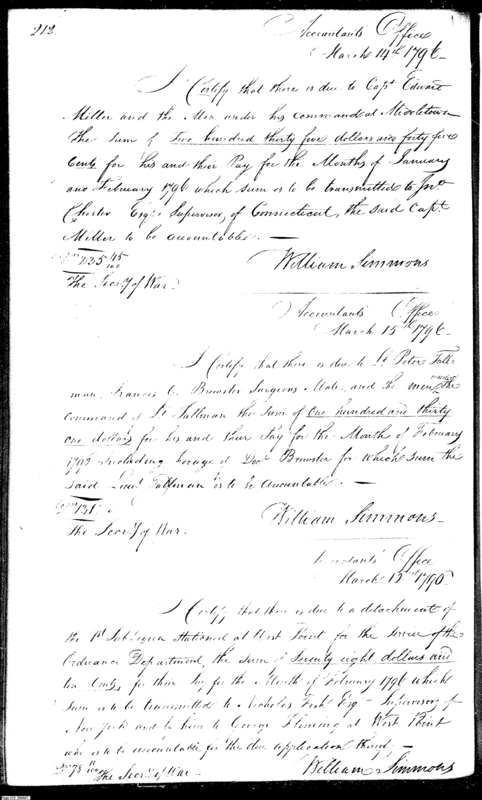 212.
Accountants Office
March 14th 1796-
I Certify that there is due to Capt Edward
Miller and the Men under his command at Middletown
the sum of Two hundred thirty five dollars and forty five
Cents for his and their Pay for the Months of January
and February 1796 which sum is to be transmitted to Jno
Chester Esqr. Supervisor, of Connecticut, the said Capt.
Miller to be accountable. -
235 45/100
William Simmons
The Secry of War.
Accountants Office
March 15th 1796-
I Certify that there is due to Lt Peter Tall-
man, Frances G. Brewster Surgeons Mate, and the men under the
command of Lt Tallman the sum of One hundred and thirty
one dollars for his and their Pay for the Month of February
1796 Including forage of Doct Brewster for which sum the
said Lieut Tallman is to be accountable. -
131
William Simmons-
The Secry of War.
Accountants Office
March 1796.
I Certify that there is due to a detachment of
the 1st Sub Legion stationed at West Point for the service of the
Ordnance Department, the sum of Seventy eight dollars and
ten Cents, for their Pay for the Month of February 1796 which
sum is to be transmitted to Nicholas Fish Esq - Supervisor, of
New York and by him to George Fleming at West Point
who is to be accountable for the due application thereof, -
78
William Simmons
The Secry of War-